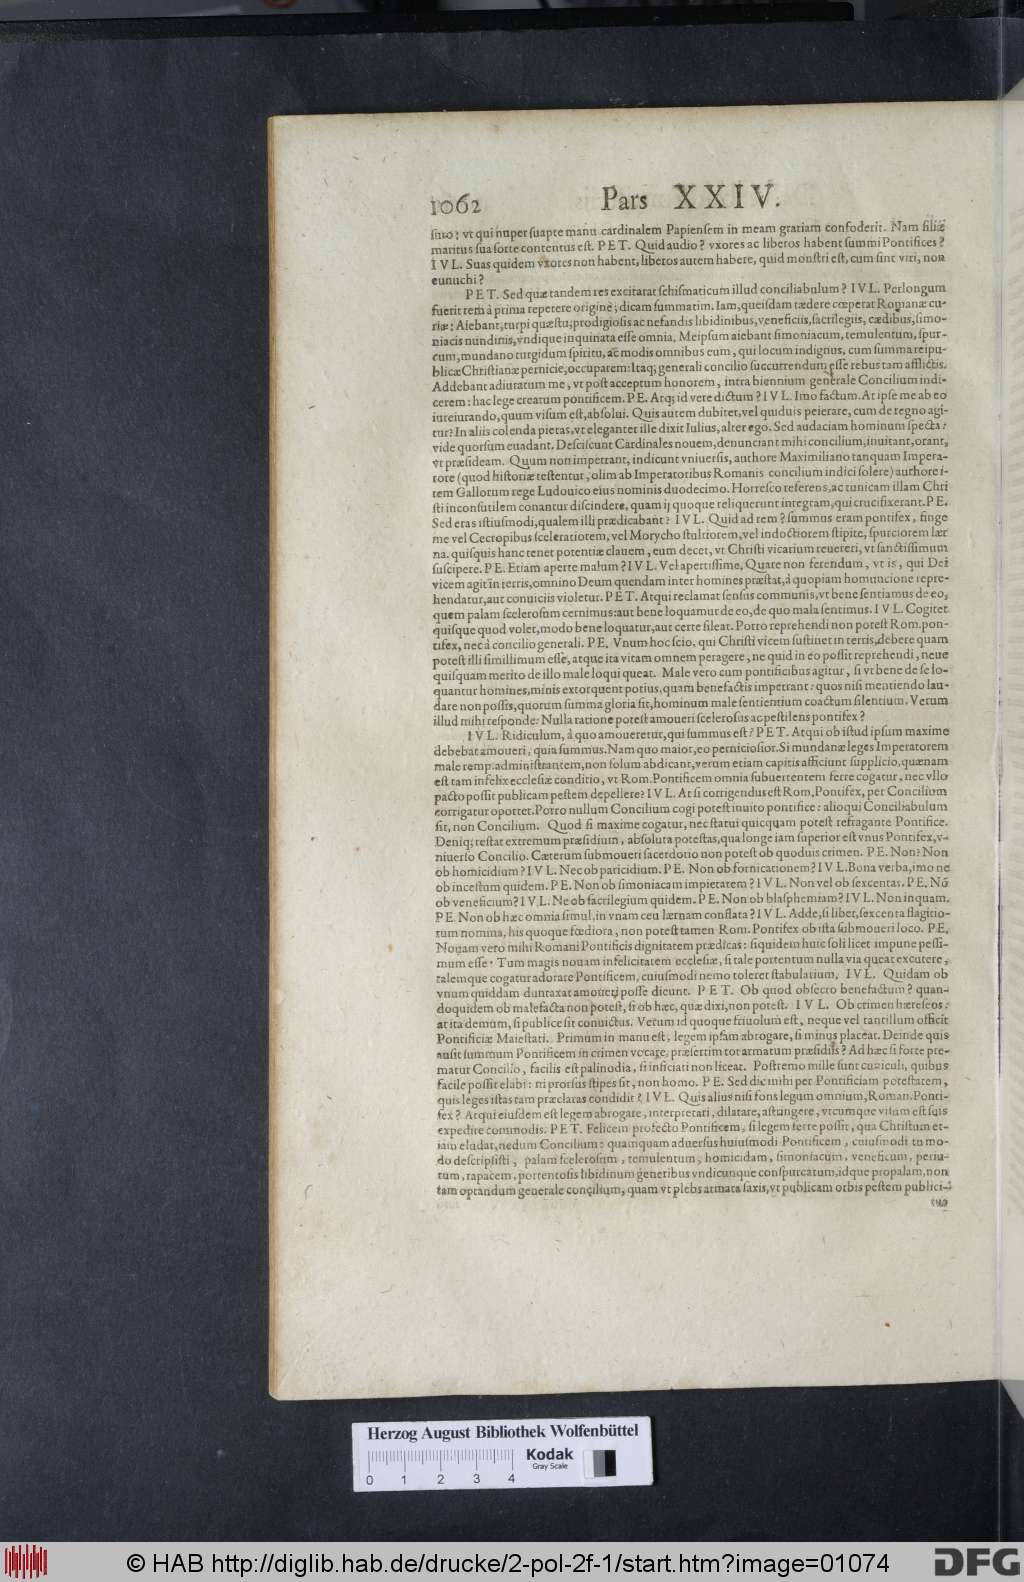 1062 Pars XXIV.
simo: vt qui nuper suapte manu cardinalem Papiensem in meam gratiam confoderit. Nam filiæ
maritus sua sorte contentus est. PET. Quid audio? vxores ac liberos habent summi Pontifices?
IVL. Suas quidem vxores non habent, liberos autem habere, quid monstri est, cum sint viri, non
eunuchi?
PET. Sed quæ tandem res excitarat schismaticum illud conciliabulum? IVL. Perlongum
fuerit rem à prima repetere origine; dicam summatim. Iam, quosdam tædere cœperat Romanæ cu-
riæ: Aiebant, turpi quæstu, prodigiosis ac nefandis libidinibus, veneficiis, sacrilegiis, cædibus, simo-
niacis nundinis, vndique inquinata esse omnia. Meipsum aiebant simoniacum, temulentum, spur-
cum, mundano turgidum spiritu, ac modis omnibus eum, qui locum indignus, cum summa reipu-
blicæ Christianæ pernicie, occuparem: Itaq; generali concilio succurrendum esse rebus tam afflictis.
Addebant adiuratum me, vt post acceptum honorem, intra biennium generale Concilium indi-
cerem: hac lege creatum pontificem. PE. Atq; id vere dictum? IVL. Imo factum. At ipse me ab eo
iureiurando, quum visum est, absolui. Quis autem dubitet, vel quiduis peierare, cum de regno agi-
tur? In aliis colenda pietas, vt eleganter ille dixit Iulius, alter ego. Sed audaciam hominum specta:
vide quorsum euadant. Desciscunt Cardinales nouem, denunciant mihi concilium, inuitant, orant,
vt præsideam. Quum non impetrant, indicunt vniuersis, authore Maximiliano tanquam Impera-
tore (quod historiæ testentur, olim ab Imperatoribus Romanis concilium indici solere) authore i-
tem Gallorum rege Ludouico eius nominis duodecimo. Horresco referens, ac tunicam illam Chri
sti inconsutilem conantur discindere, quam ij quoque reliquerunt integram, qui crucifixerant. PE.
Sed eras istiusmodi, qualem illi prædicabant? IVL. Quid ad rem? summus eram pontifex, finge
me vel Cecropibus sceleratiorem, vel Morycho stultiorem, vel indoctiorem stipite, spurciorem lær
na. quisquis hanc tenet potentiæ clauem, eum decet, vt Christi vicarium reuereri, vt sanctissimum
suscipere. PE. Etiam aperte malum? IVL. Vel apertissime, Quare non ferendum, vt is, qui Dei
vicem agit in terris, omnino Deum quendam inter homines præstat, à quopiam homuncione repre-
hendatur, aut conuiciis violetur. PET. Atqui reclamat sensus communis, vt bene sentiamus de eo,
quem palam scelerosum cernimus: aut bene loquamur de eo, de quo mala sentimus. IVL. Cogitet
quisque quod volet, modo bene loquatur, aut certe sileat. Porro reprehendi non potest Rom. pon-
tifex, nec à concilio generali. PE. Vnum hoc scio, qui Christi vicem sustinet in terris, debere quam
potest illi simillimum esse, atque ita vitam omnem peragere, ne quid in eo possit reprehendi, neue
quisquam merito de illo male loqui queat. Male vero cum pontificibus agitur, si vt bene de se lo-
quantur homines, minis extorquent potius, quam benefactis impetrant: quos nisi mentiendo lau-
dare non possis, quorum summa gloria sit, hominum male sentientium coactum silentium. Verum
illud mihi responde: Nulla ratione potest amoueri scelerosus ac pestilens pontifex?
IVL. Ridiculum, à quo amoueretur, qui summus est? PET. Atqui ob istud ipsum maxime
debebat amoueri, quia summus. Nam quo maior, eo perniciosior. Si mundanæ leges Imperatorem
male remp. administrantem, non solum abdicant, verum etiam capitis afficiunt supplicio, quænam
est tam infelix ecclesiæ conditio, vt Rom. Pontificem omnia subuertentem ferre cogatur, nec vllo
pacto possit publicam pestem depellere? IVL. At si corrigendus est Rom. Pontifex, per Concilium
corrigatur oportet. Porro nullum Concilium cogi potest inuito pontifice: alioqui Conciliabulum
sit, non Concilium. Quod si maxime cogatur, nec statui quicquam potest refragante Pontifice.
Deniq; restat extremum præsidium, absoluta potestas, qua longe iam superior est vnus Pontifex, v-
niuerso Concilio. Cæterum submoueri sacerdotio non potest ob quoduis crimen. PE. Non? Non
ob homicidium? IVL. Nec ob paricidium. PE. Non ob fornicationem? IVL. Bona verba, imo ne
ob incestum quidem. PE. Non ob simoniacam impietatem? IVL. Non vel ob sexcentas. PE. Nō
ob veneficium? IVL. Ne ob sacrilegium quidem. PE. Non ob blasphemiam? IVL. Non inquam.
PE. Non ob hæc omnia simul, in vnam ceu lærnam conflata? IVL. Adde, si liber, sexcenta flagitio-
rum nomina, his quoque fœdiora, non potest tamen Rom. Pontifex ob ista submoueri loco. PE.
Nouam vero mihi Romani Pontificis dignitatem prædicas: siquidem huic soli licet impune pessi-
mum esse. Tum magis nouam infelicitatem ecclesiæ, si tale portentum nulla via queat excutere,
talemque cogatur adorare Pontificem, cuiusmodi nemo toleret stabularium. IVL. Quidam ob
vnum quiddam duntaxat amoueri posse dicunt. PET. Ob quod obsecro benefactum? quan-
doquidem ob malefacta non potest, si ob hæc, quæ dixi, non potest. IVL. Ob crimen hæreseos:
at ita demum, si publice sit conuictus. Verum id quoque friuolum est, neque vel tantillum officit
Pontificiæ Maiestati. Primum in manu est, legem ipsam abrogare, si minus placeat. Deinde quis
ausit summum Pontificem in crimen vocare, præsertim tot armatum præsidiis? Ad hæc si forte pre-
matur Concilio, facilis est palinodia, si inficiari non liceat. Postremo mille sunt cuniculi, quibus
facile possit elabi: ni prorsus stipes sit, non homo. PE. Sed dic mihi per Pontificiam potestatem,
quis leges istas tam præclaras condidit? IVL. Quis alius nisi fons legum omnium, Roman. Ponti-
fex? Atqui eiusdem est legem abrogare, interpretari, dilatare, astringere, vtcumque visum est suis
expedire commodis. PET. Felicem profecto Pontificem, si legem ferre possit, qua Christum et-
iam eludat, nedum Concilium: quamquam aduersus huiusmodi Pontificem, cuiusmodi tu mo-
do descripsisti, palam scelerosum, temulentum, homicidam, simoniacum, veneficum, periu-
rum, rapacem, portentosis libidinum generibus vndicunque conspurcatum, idque propalam, non
tam optandum generale concilium, quam vt plebs armata saxis, vt publicam orbis pestem publici-
Herzog August Bibliothek Wolfenbüttel
Kodak
Gray Scale
0 1 2 3 4
© HAB http://diglib.hab.de/drucke/2-pol-2f-1/start.htm?image=01074
DFG